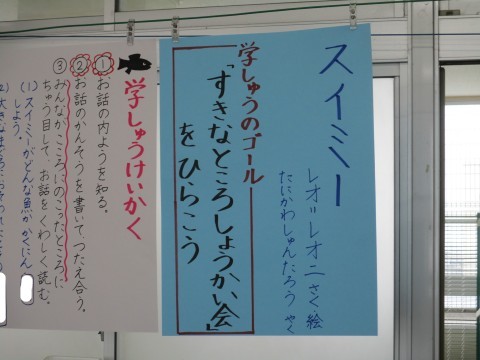 スイミー
レオ=レオニ さく・絵
たにかわしゅんたろう やく
学しゅうのゴール
「すきなところしょうかい会」
をひらこう
学しゅうけいかく
① お話の内ようを知る。
② お話のかんそうを書いて、つたえ合う。
③ みんなが、こころにのこったところに
ちゅう目して、お話をくわしく読む。
(1) スイミーがどんな魚か かくにん
しよう。